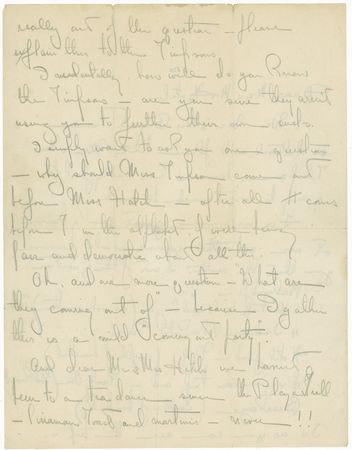 really out of the question - please
explain this to the Timpsons.
Incidentally, how well do you know
the Timpsons - are you sure they aren't
using you to further their own ends.
I simply want to ask you one question
- why should Miss Timpson come out
before Miss Hatch - after all H comes
before T in the alphabet if we're being
fair and democratic about all this.
Oh, and one more question - "What are
they coming out of" - because I gather
this is a mild "coming out party".
And dear Mr & Mrs Hatch we haven't
been to a tea dance since the Plaza
- Cinnamon Toast and martinis - never!!